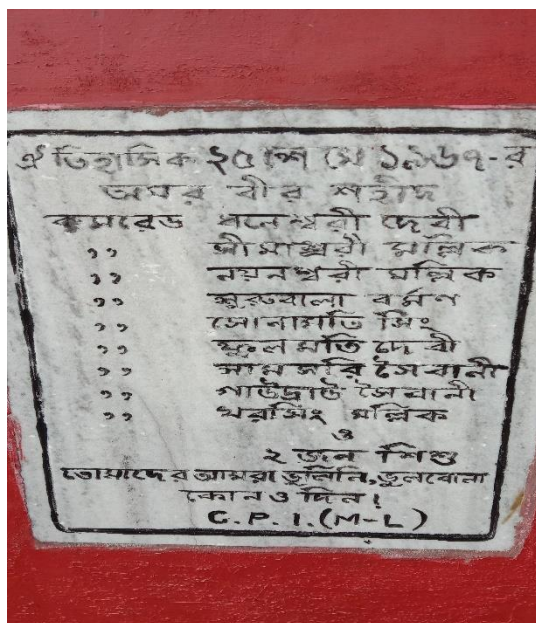 ঐতিহাসিক ২৫শে মে ১৯৬৭-র
অমর বীর শহীদ
কমরেড ধনেশ্বরী দেবী
,, শ্রীমাশ্বরী মল্লিক
,, নয়নশ্বরী মল্লিক
,, সুরুবালা বর্মণ
,, সোনামতি সিং
,, ফুলমতি দেবী
,, সামসরি সৈবানী
,, গাউদ্রাউ সৈবানী
,, খরসিং মল্লিক
ও
২ জন শিশু
তোমাদের আমরা ভুলিনি, ভুলবোনা
কোনও দিন!
C.P.I.(M-L)